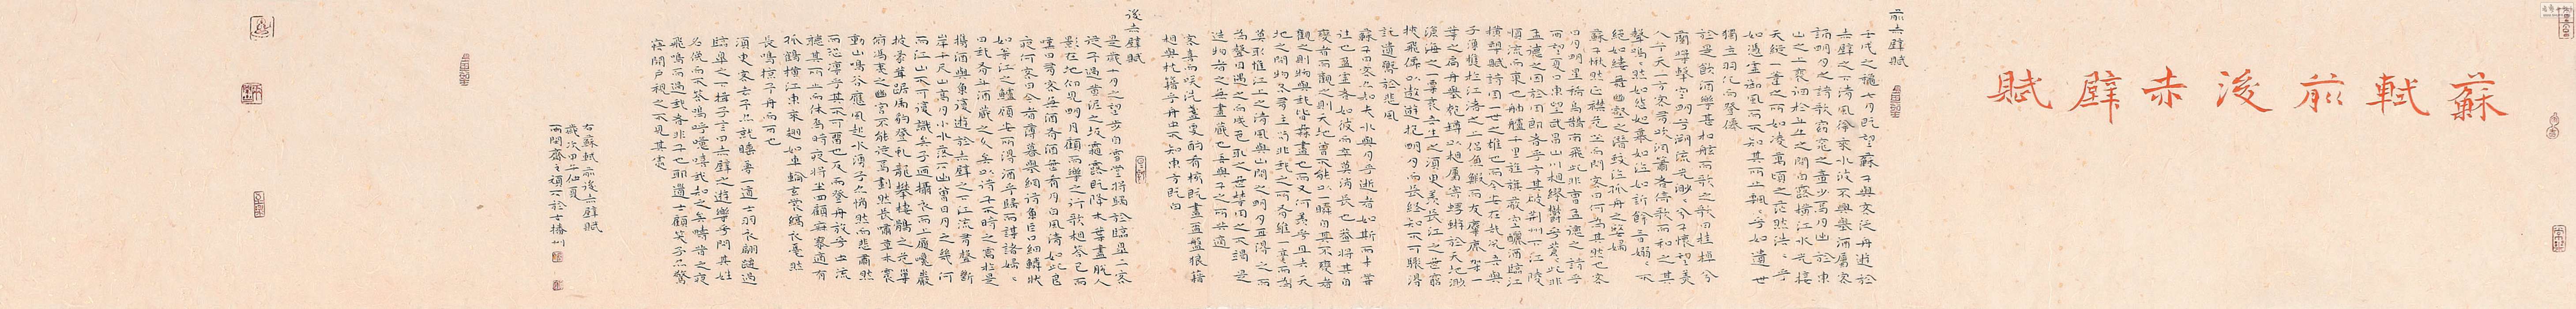 蘇軾前後赤壁賦
前赤壁賦
壬戌之穐七月既望蘇子與客泛舟遊於
赤壁之下清風徐來水波不興舉酒屬客
誦明月之詩歌窈窕之章少焉月出於東
山之上裵回於斗牛之間白露橫江水光接
天縱一葦之所如凌萬頃之茫然浩〻乎
如馮虛御風而不知其所止飄〻乎如遺世
獨立羽化而登僊
於是飲酒樂甚扣舷而歌之歌曰桂棹兮
蘭槳擊空明兮溯流光渺〻兮予懷望美
人兮天一方客有吹洞簫者倚歌而和之其
聲嗚〻然如怨如慕如泣如訴餘音嫋〻不
絕如縷舞幽壑之潛蛟泣孤舟之嫠婦
蘇子愀然正襟危坐而問客曰何為其然也客
曰月明星稀烏鵲南飛此非曹孟德之詩乎
西望夏口東望武昌山川相繆鬱乎蒼〻此非
孟德之困於周郎者乎方其破荊州下江陵
順流而東也舳艫千里旌旗蔽空釃酒臨江
橫槊賦詩固一世之雄也而今安在哉況吾與
子漁樵於江渚之上侶魚蝦而友麋鹿駕一
葉之扁舟舉匏樽以相屬寄蜉蝣於天地渺
滄海之一粟哀吾生之須臾羨長江之無窮
挾飛僊以遨遊抱明月而長終知不可驟得
託遺響於悲風
蘇子曰客亦知夫水與月乎逝者如斯而未嘗
往也盈虛者如彼而卒莫消長也蓋將其自
變者而觀之則天地曾不能以一瞬自其不變者
觀之則物與我皆無盡也而又何羨乎且夫天
地之間物各有主苟非我之所有雖一毫而
莫取惟江上之清風與山間之明月耳得之而
為聲目遇之而成色取之無禁用之不竭是
造物者之無盡藏也吾與子之所共適
客喜而笑洗盞更酌肴核既盡盃盤狼藉
相與枕藉乎舟中不知東方既白
後赤壁賦
是歲十月之望步自雪堂將歸於臨皋二客
從予過黃泥之坂霜露既降木葉盡脫人
影在地仰見明月顧而樂之行歌相答已而
嘆曰有客無酒有酒無肴月白風清如此良
夜何客曰今者薄暮舉網得魚巨口細鱗狀
如松江之鱸顧安所得酒乎歸而謀諸婦〻
曰我有斗酒藏之久矣以待子不時之需於是
攜酒與魚復遊於赤壁之下江流有聲斷
岸千尺山高月小水落石出曾日月之幾何
而江山不可復識矣予迺攝衣而上履巉巖
披蒙茸踞虎豹登虬龍攀棲鶻之危巢
俯馮夷之幽宮不能從焉劃然長嘯草木震
動山鳴谷應風起水湧予亦悄然而悲肅然
而恐凜乎其不可留也反而登舟放乎中流
聽其所止而休焉時夜將半四顧寂寥適有
孤鶴橫江東來翅如車輪玄裳縞衣戛然
長鳴掠予舟而西也
須臾客去予亦就睡夢一道士羽衣翩躚過
臨皋之下揖予言曰赤壁之遊樂乎問其姓
名俛而不答嗚呼噫嘻我知之矣疇昔之夜
飛鳴而過我者非子也耶道士顧笑予亦驚
寤開戶視之不見其處
右蘇軾前後赤壁賦
歲次甲仲夏
閒齋於古播州